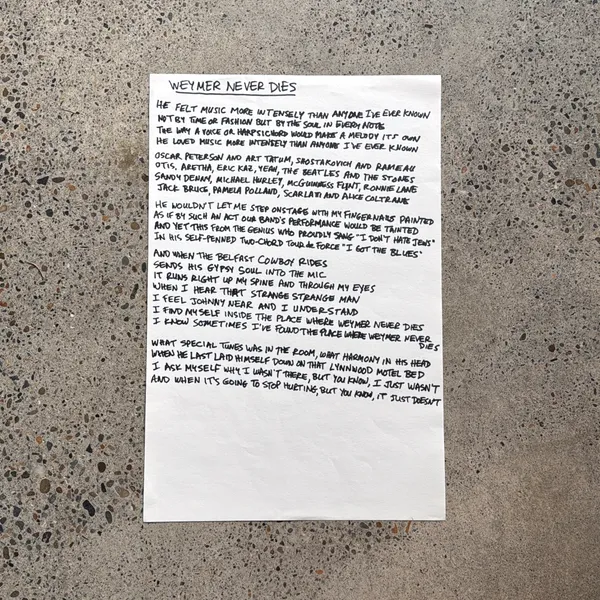 WEYMER NEVER DIES
HE FELT MUSIC MORE INTENSELY THAN ANYONE I'VE EVER KNOWN
NOT BY TIME OR FASHION BUT BY THE SOUL IN EVERY NOTE
THE WAY A VOICE OR HARPSICHORD WOULD MAKE A MELODY ITS OWN
HE LOVED MUSIC MORE INTENSELY THAN ANYONE I'VE EVER KNOWN
OSCAR PETERSON AND ART TATUM, SHOSTAKOVICH AND RAMEAU
OTIS, ARETHA, ERIC KAZ, YEAH, THE BEATLES AND THE STONES
SANDY DENNY, MICHAEL HURLEY, MCGUINNESS FLINT, RONNIE LANE
JACK BRUCE, PAMELA POLLAND, SCARLATTI AND ALICE COLTRANE
HE WOULDN'T LET ME STEP ONSTAGE WITH MY FINGERNAILS PAINTED
AS IF BY SUCH AN ACT OUR BAND'S PERFORMANCE WOULD BE TAINTED
AND YET THIS FROM THE GENIUS WHO PROUDLY SANG "I DON'T HATE JEWS"
IN HIS SELF-PENNED TWO-CHORD TOUR de FORCE "I GOT THE BLUES"
AND WHEN THE BELFAST COWBOY RIDES
SENDS HIS GYPSY SOUL INTO THE MIC
IT RUNS RIGHT UP MY SPINE AND THROUGH MY EYES
WHEN I HEAR THAT STRANGE STRANGE MAN
I FEEL JOHNNY NEAR AND I UNDERSTAND
I FIND MYSELF INSIDE THE PLACE WHERE WEYMER NEVER DIES
I KNOW SOMETIMES I'VE FOUND THE PLACE WHERE WEYMER NEVER
DIES
WHAT SPECIAL TUNES WAS IN THE ROOM, WHAT HARMONY IN HIS HEAD
WHEN HE LAST LAID HIMSELF DOWN ON THAT LYNNWOOD MOTEL BED
I ASK MYSELF WHY I WASN'T THERE, BUT YOU KNOW, I JUST WASN'T
AND WHEN IT'S GOING TO STOP HURTING, BUT YOU KNOW, IT JUST DOESN'T